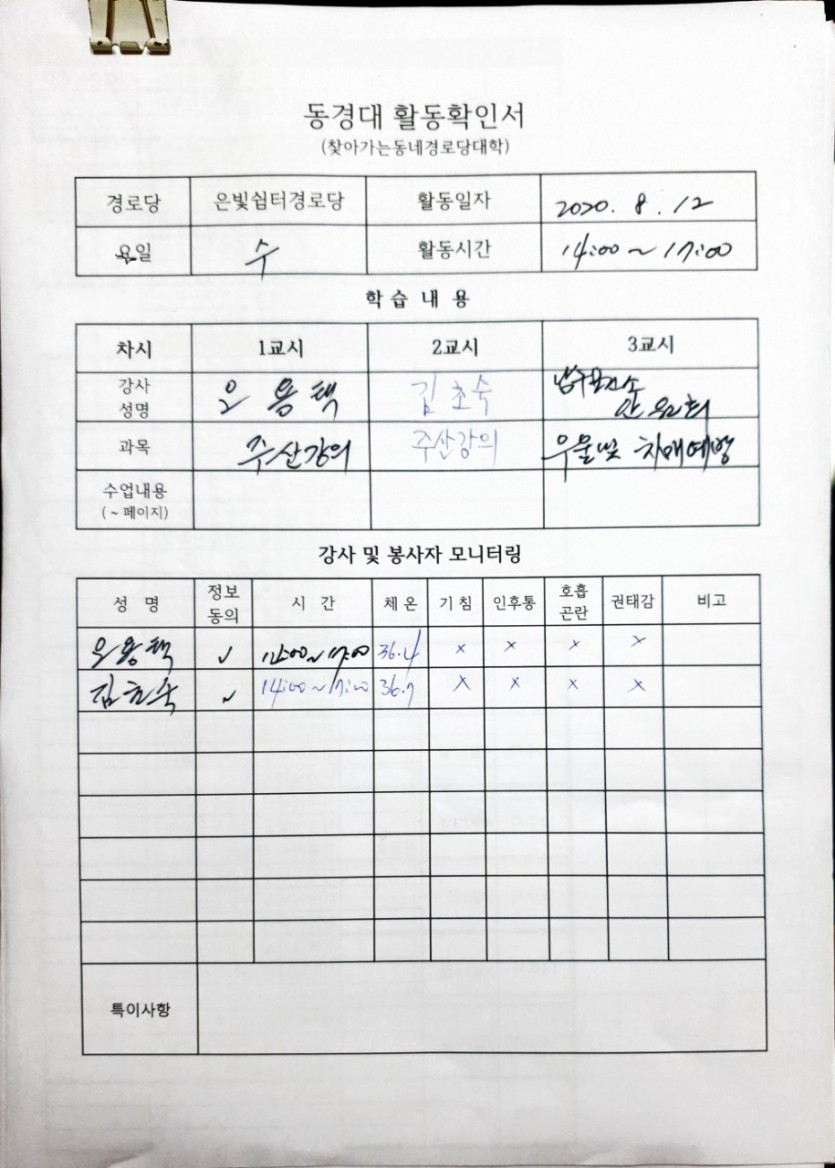 동경대 활동확인서
(찾아가는동네경로당대학)
경로당 은빛쉼터경로당 활동일자 2020. 8. 12
요일 수 활동시간 14:00 ~ 17:00
학 습 내 용
차시 1교시 2교시 3교시
강사 성명 오 용 택 김 초 숙 남구보건소
과목 주산강의 주산강의 우울및 치매예방
수업내용
(~ 페이지)
강사 및 봉사자 모니터링
성 명 정보 동의 시 간 체 온 기 침 인후통 호흡 곤란 권태감 비고
오 용 택 ✓ 14:00 ~ 17:00 36.4 × × × ×
김 초 숙 ✓ 14:00 ~ 17:00 36.7 × × × ×
특이사항